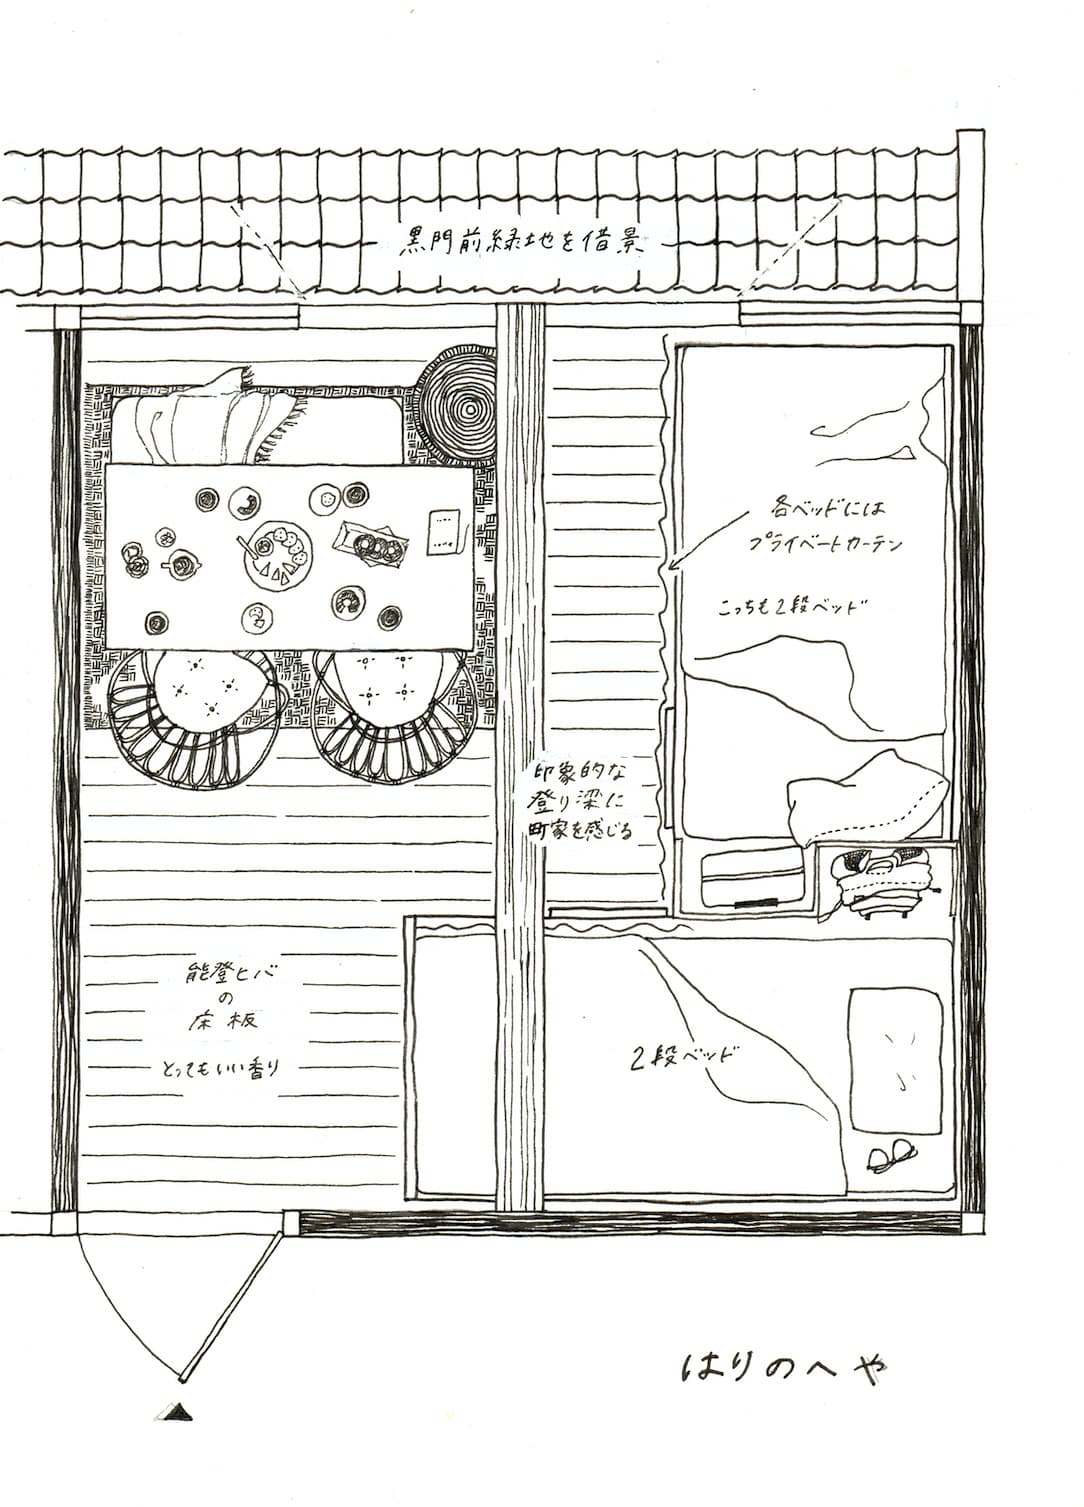 黒門前緑地を借景
各ベッドには
プライベートカーテン
こっちも2段ベッド
印象的な
登り梁に
町家を感じる
能登ヒバ
の
床板
とってもいい香り
2段ベッド
はりのへや